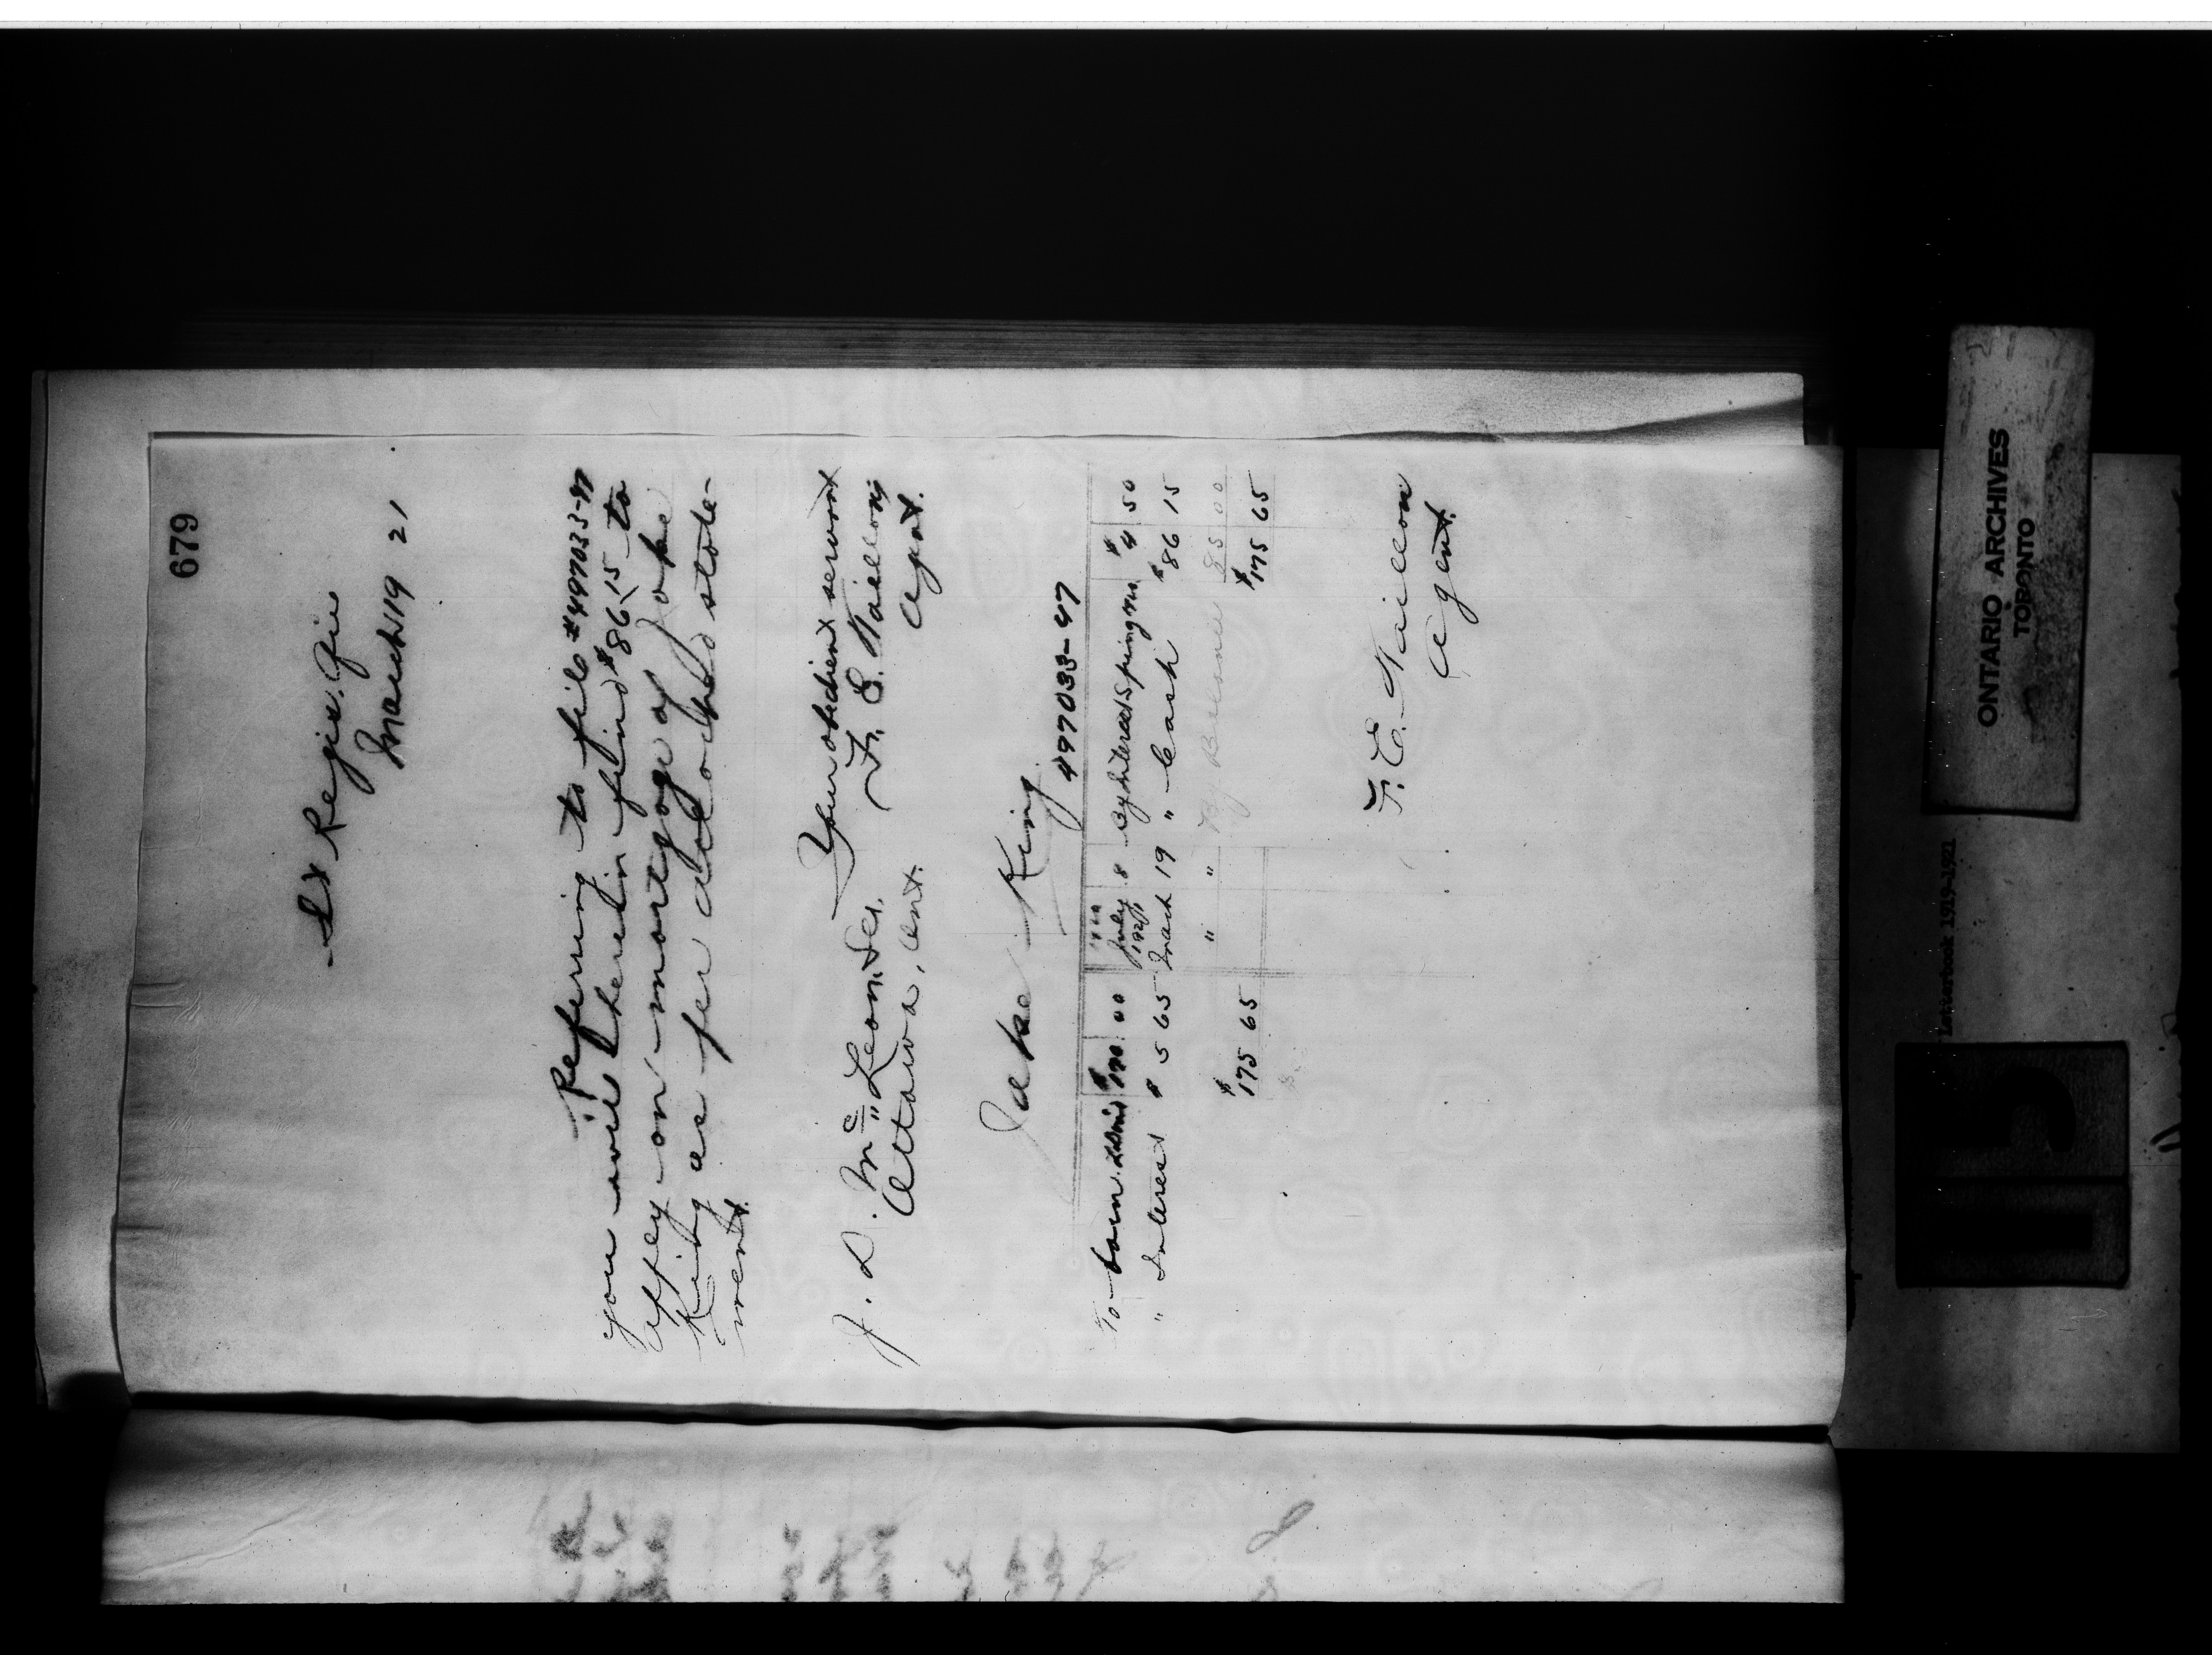 679
St Regis. Que
March 19 21
Referring to file #497033-47
you will herein find $86.15 to
apply on mortgage of Jake
King as per attached state-
ment.
Your obedient servant
F. E. Taillon
Agent.
J. D. Mc Lean, Sec.
Ottawa, Ont.
Jake King
497033-47
To Loan $170 00 July 8 By Interest Spring $4 50
" Interest $5 65 March 19 " Cash $86 15
" " By Balance 85 00
$175 65 $175 65
F. E. Taillon
Agent.
ONTARIO ARCHIVES
TORONTO
Letterbook 1919-1921